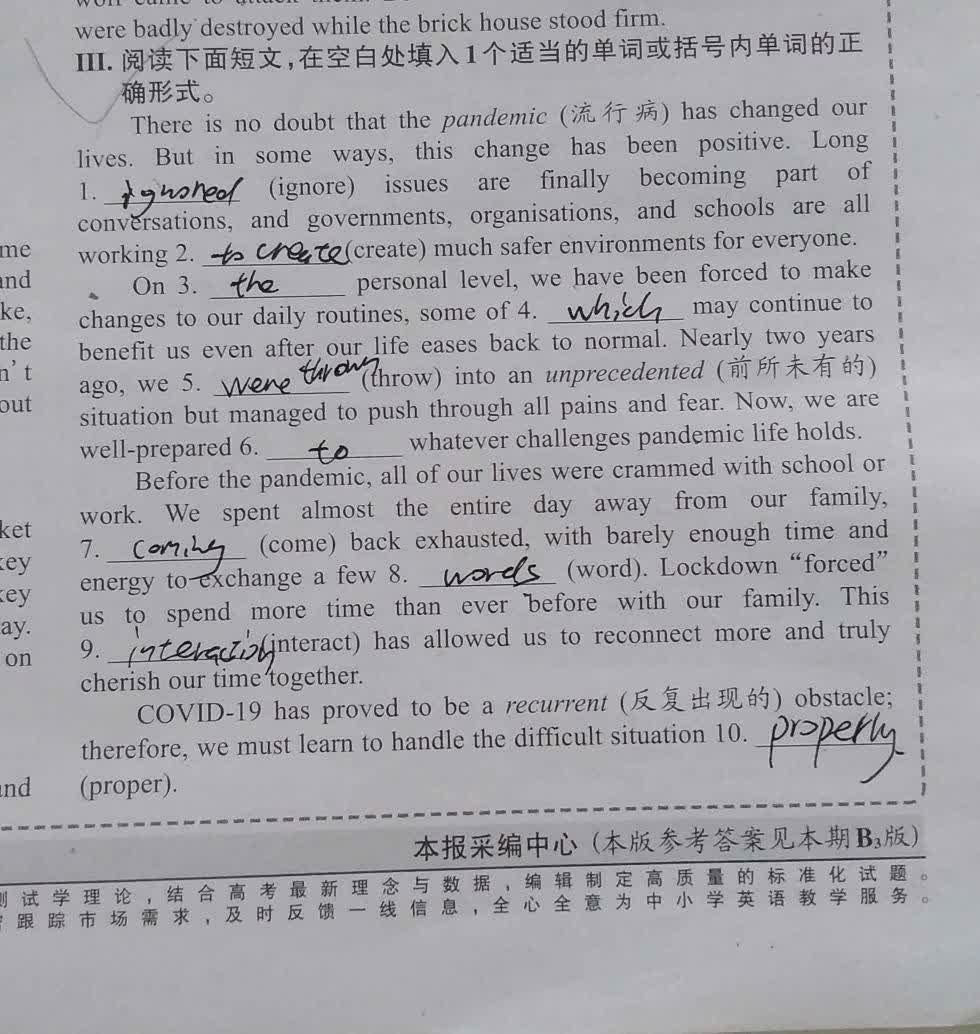 were badly destroyed while the brick house stood firm.
III. 阅读下面短文,在空白处填入1个适当的单词或括号内单词的正
确形式。
There is no doubt that the pandemic (流行病) has changed our
lives. But in some ways, this change has been positive. Long
1. ignored (ignore) issues are finally becoming part of
conversations, and governments, organisations, and schools are all
me working 2. to create (create) much safer environments for everyone.
and On 3. the personal level, we have been forced to make
ke, changes to our daily routines, some of 4. which may continue to
the benefit us even after our life eases back to normal. Nearly two years
n't ago, we 5. were thrown (throw) into an unprecedented (前所未有的)
out situation but managed to push through all pains and fear. Now, we are
well-prepared 6. to whatever challenges pandemic life holds.
Before the pandemic, all of our lives were crammed with school or
ket work. We spent almost the entire day away from our family,
key 7. coming (come) back exhausted, with barely enough time and
key energy to exchange a few 8. words (word). Lockdown “forced”
ay. us to spend more time than ever before with our family. This
on 9. interaction (interact) has allowed us to reconnect more and truly
cherish our time together.
COVID-19 has proved to be a recurrent (反复出现的) obstacle;
therefore, we must learn to handle the difficult situation 10. properly
and (proper).
本报采编中心 (本版参考答案见本期B3版)
测试学理论,结合高考最新理念与数据,编辑制定高质量的标准化试题。
跟踪市场需求,及时反馈一线信息,全心全意为中小学英语教学服务。